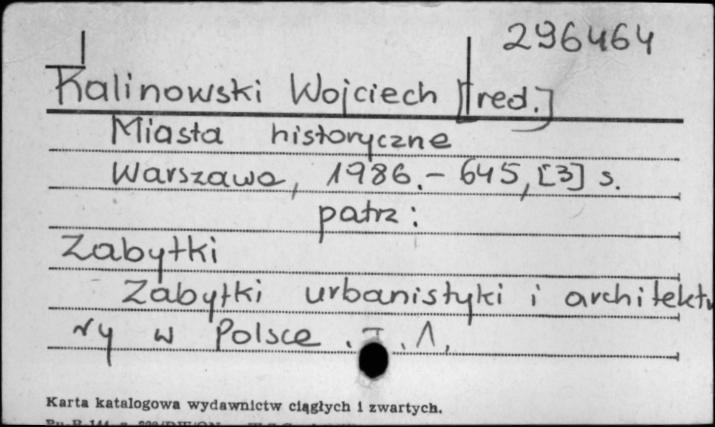 296464
Kalinowski Wojciech [red.]
Miasta historyczne
Warszawa, 1986.- 645, [3] s.
patrz:
Zabytki
Zabytki urbanistyki i architektu
ry w Polsce . T. 1.
Karta katalogowa wydawnictw ciągłych i zwartych.